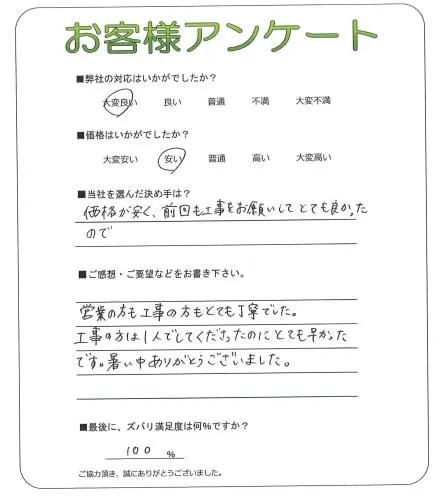 お客様アンケート
■弊社の対応はいかがでしたか?
大変良い 良い 普通 不満 大変不満
■価格はいかがでしたか?
大変安い 安い 普通 高い 大変高い
■当社を選んだ決め手は?
価格が安く、前回も工事をお願いしてとても良かった
ので
■ご感想・ご要望などをお書き下さい。
営業の方も工事の方もとても丁寧でした。
工事の方は1人でしてくださったのにとても早かった
です。暑い中ありがとうございました。
■最後に、ズバリ満足度は何%ですか?
100 %
ご協力頂き、誠にありがとうございました。